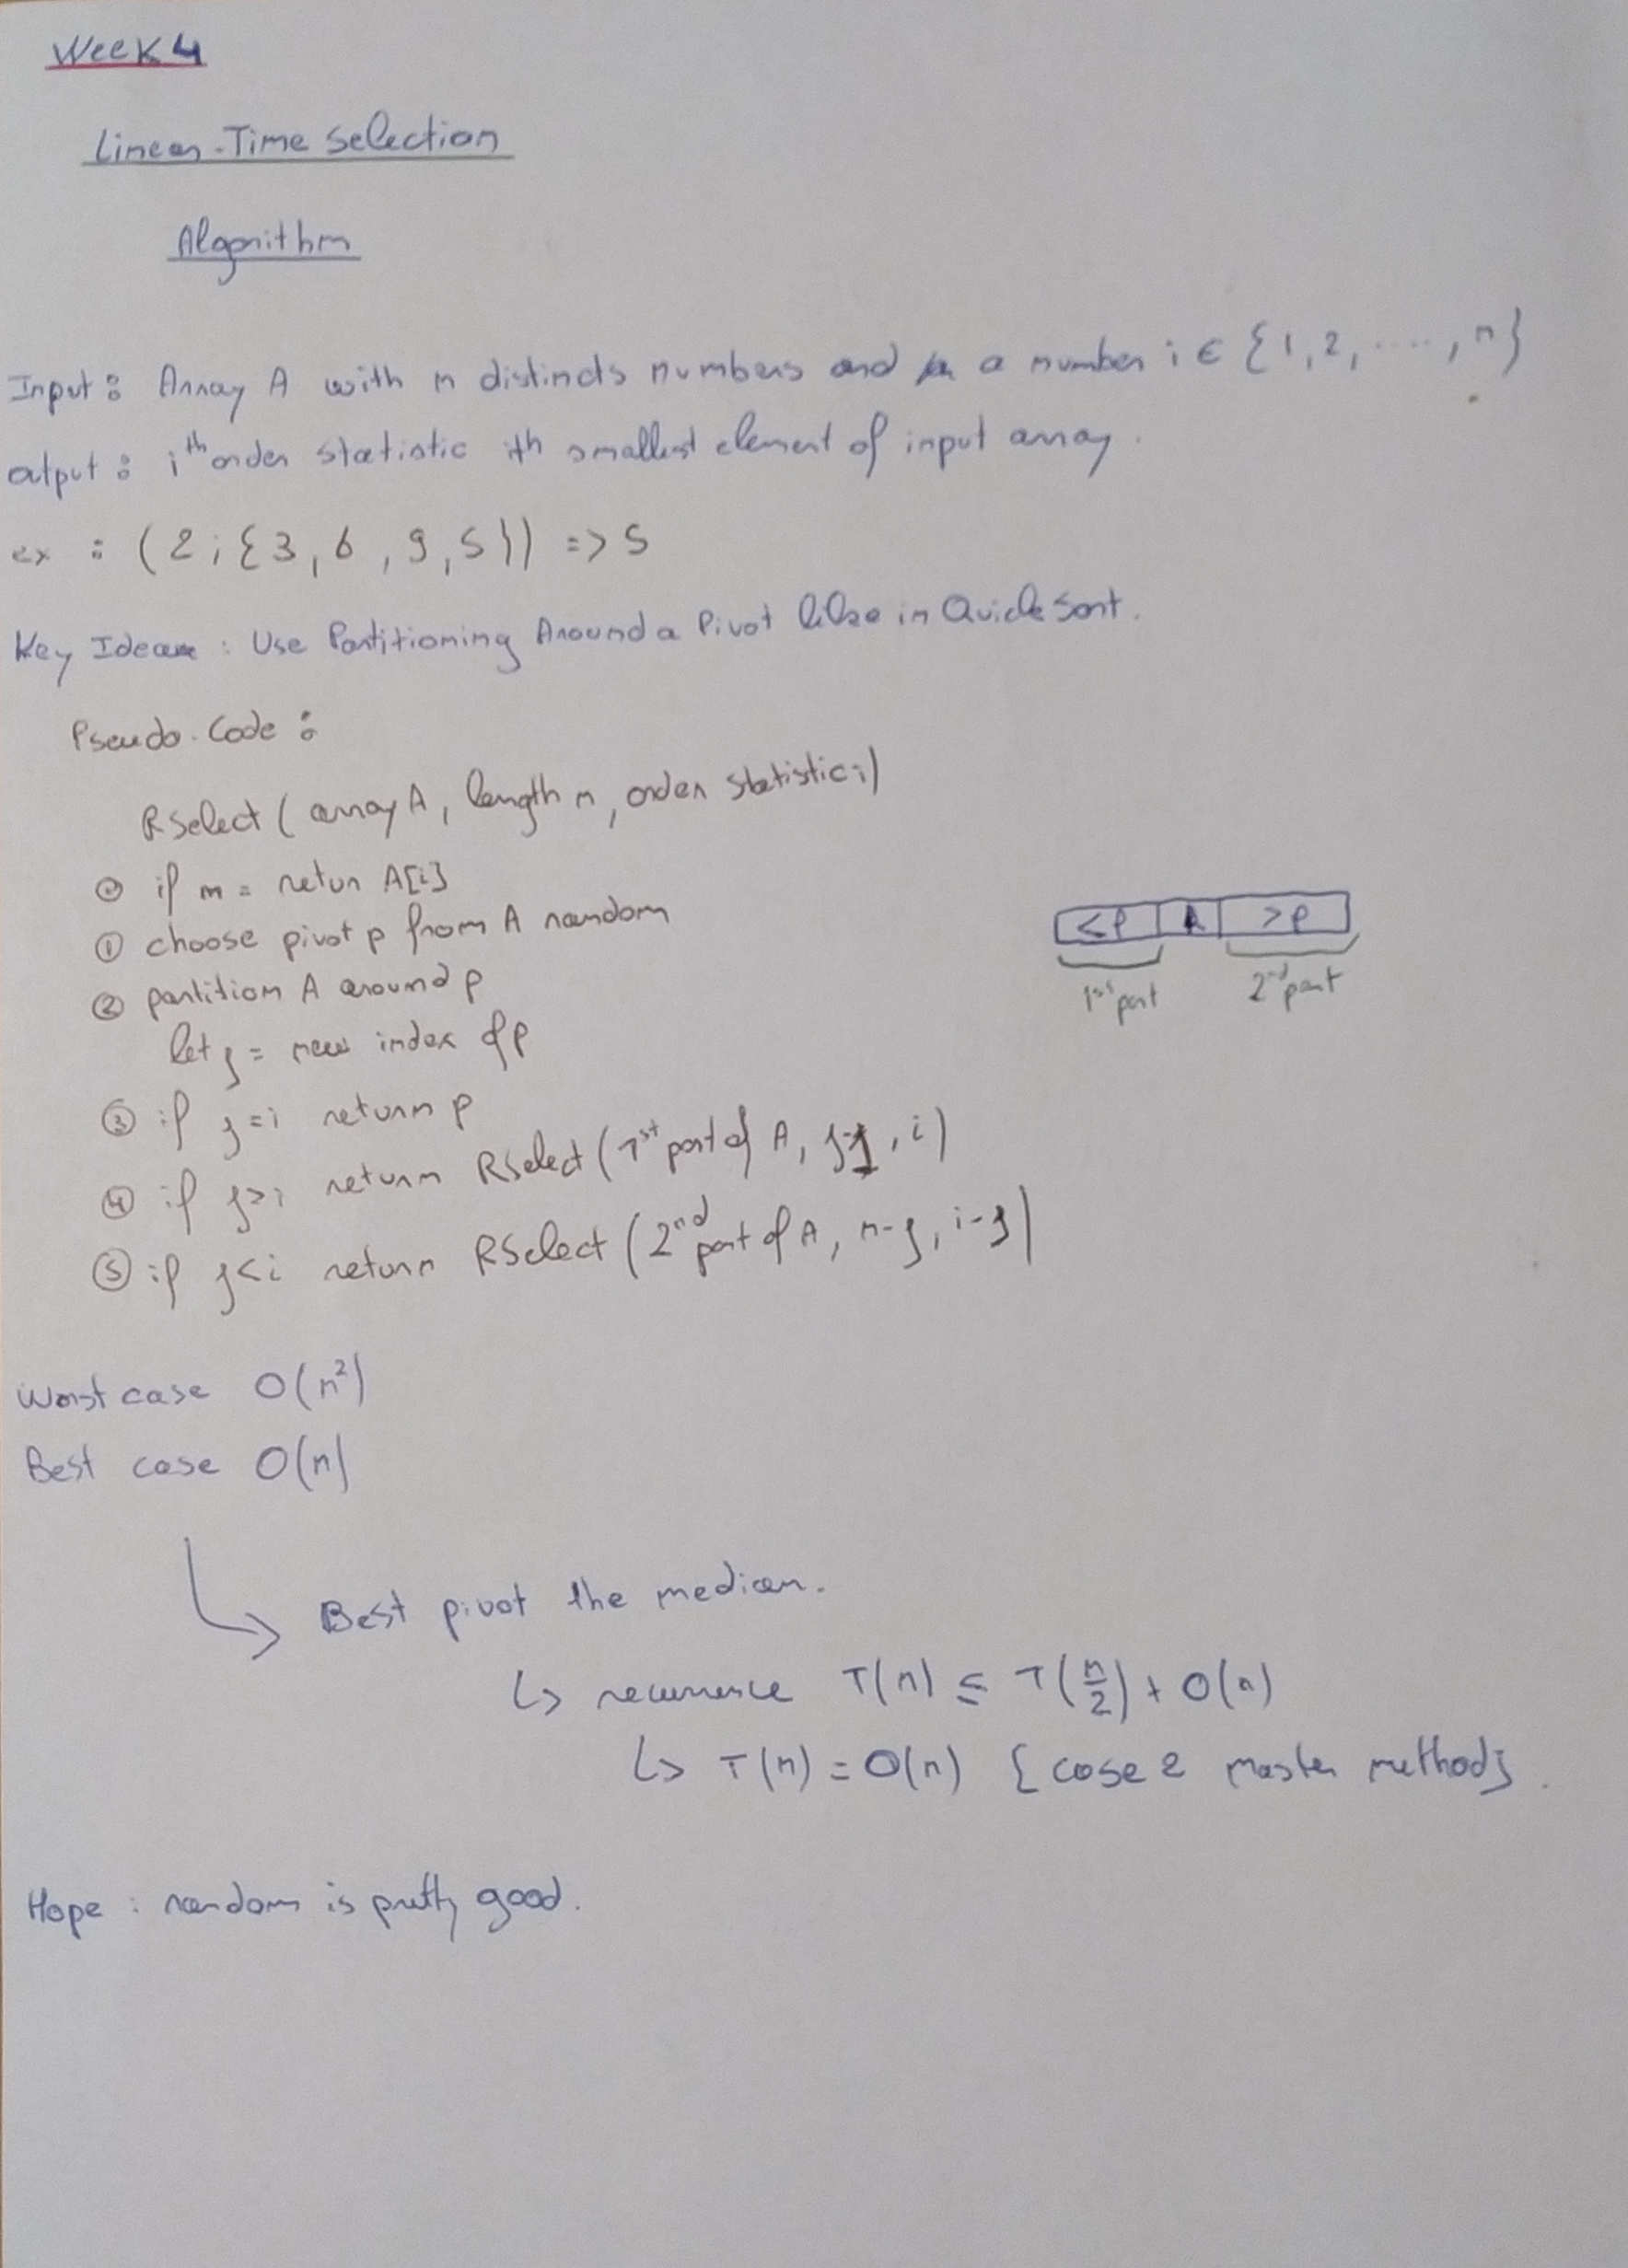 Week 4
Linear-Time Selection
Algorithm
Input : Array A with n distincts numbers and a number i ∈ {1,2,.....,n}
output : i^th order statistic ith smallest element of input array.
ex : (2;{3,6,9,5}) => 5
Key Idea : Use Partitioning Around a Pivot like in Quick Sort.
Pseudo-Code :
RSelect ( array A, length n, order statistic i)
⓪ if n = return A[i]
① choose pivot p from A random
② partition A around p
let j = new index of p
③ if j=i return p
④ if j>i return RSelect (1st part of A, j-1, i)
⑤ if j<i return RSelect (2nd part of A, n-j, i-j)
<P >P
1st part 2nd part
Worst case O(n²)
Best case O(n)
↳ Best pivot the median.
↳ recurrence T(n) ≤ T(n/2) + O(n)
↳ T(n) = O(n) {case 2 master method}.
Hope : random is pretty good.